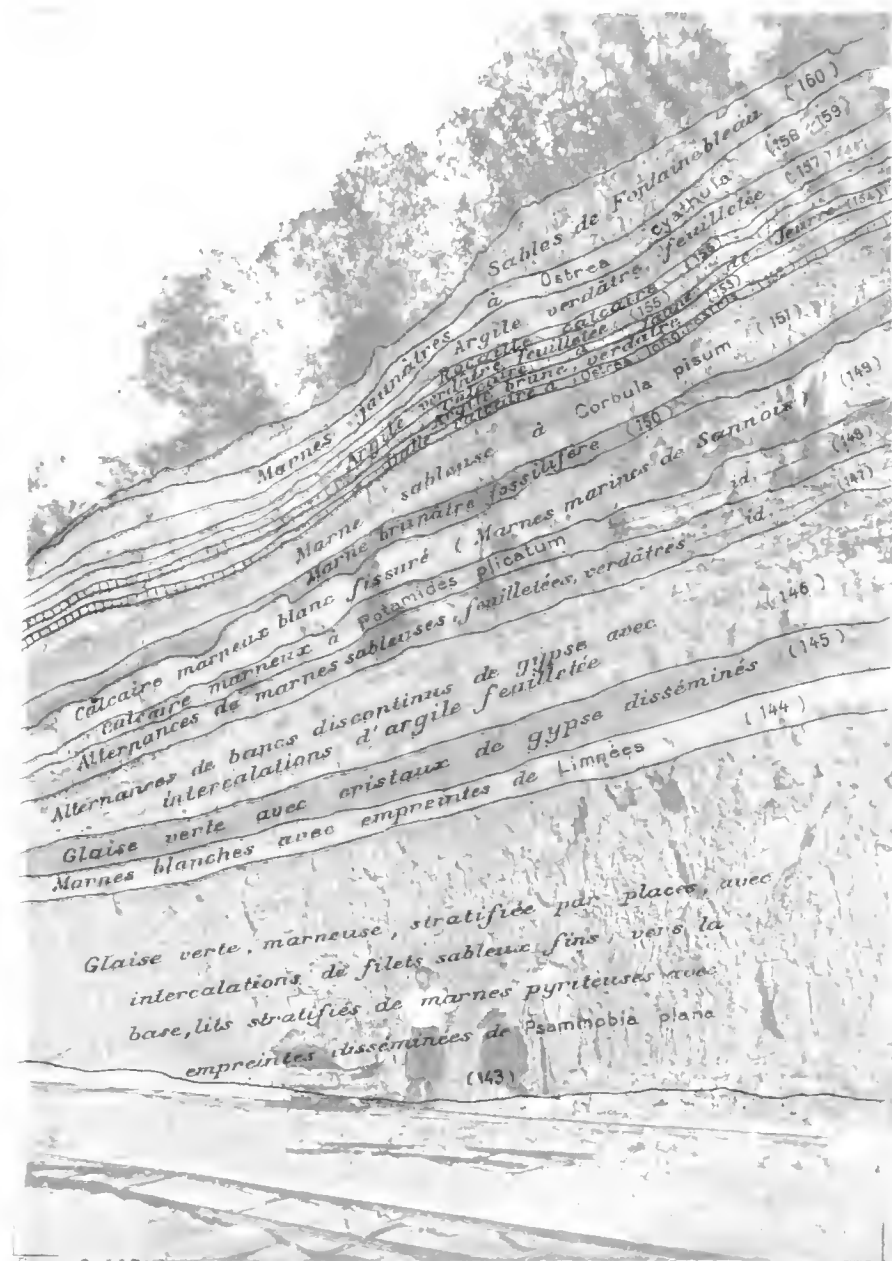 Sables de Fontainebleau (160)
Marnes jaunâtres à Ostrea cyathula (158-159)
Argile verdâtre feuilletée (157)
Rocaille calcaire (156)
Argile verdâtre feuilletée (155)
Calcaire à faune de Jeurre (154)
Argile brune verdâtre (153)
calcaire à Ostrea longirostris
Marne sableuse à Corbula pisum (151)
Marne brunâtre fossilifère (150)
Calcaire marneux blanc fissuré (Marnes marines de Sannois) (149)
Calcaire marneux à Potamides plicatum id. (148)
Alternances de marnes sableuses, feuilletées, verdâtres id. (147)
Alternances de bancs discontinus de gypse avec
intercalations d'argile feuilletée (146)
Glaise verte avec cristaux de gypse disséminés (145)
Marnes blanches avec empreintes de Limnées (144)
Glaise verte, marneuse, stratifiée par places, avec
intercalations de filets sableux fins, vers la
base, lits stratifiés de marnes pyriteuses avec
empreintes disséminées de Psammobia plana
(143)